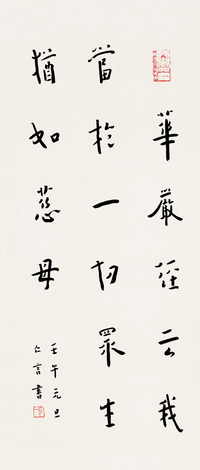 華嚴經云我
當於一切眾生
猶如慈母
壬午元旦
亡言書